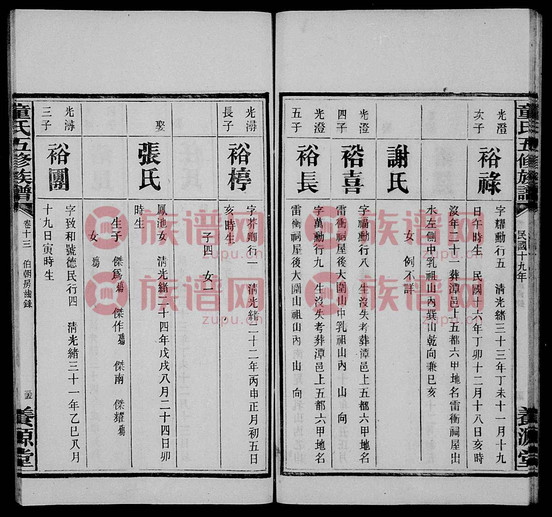 童氏五修族譜
民國十九年
養源堂
光澄
次子
裕祿
字耀勳行五 清光緒三十三年丁未十一月十九
日午時生 民國十六年丁卯十二月十八日亥時
沒年二十一葬潭邑上五都六甲地名雷衝祠屋出
水左側中乳祖山內巽山乾向兼巳亥
謝氏
女 例不詳
光澄
四子
裕喜
字萬勳行八 生沒失考葬潭邑上五都六甲地名
雷衝祠屋後大圍山中乳祖山內 山 向
光澄
五子
裕長
字華勳行九 生沒失考葬潭邑上五都六甲地名
雷衝祠屋後大圍山祖山內 山 向
光濤
長子
裕榜
行一 清光緒二十二年丙申正月初五日
亥時生
子四 女二
娶
張氏
鳳池女 清光緒二十四年戊戌八月二十四日卯
時生
生子 傑為 傑作 傑南 傑耀
女
光濤
三子
裕團
字致和號德民行四 清光緒三十一年乙巳八月
十九日寅時生
童氏五修族譜
卷十三 伯朝房
養源堂
族谱网
zupu.cn